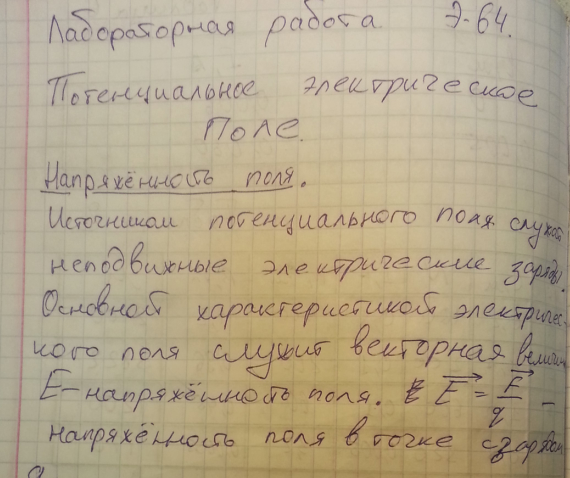 Лабораторная работа Э-64.
Потенциальное электрическое
Поле.
Напряжённость поля.
Источником потенциального поля служат
неподвижные электрические заряды.
Основной характеристикой электричес-
кого поля служит векторная величин
E-напряжённость поля. E = F/q -
напряжённость поля в точке с зарядом
q